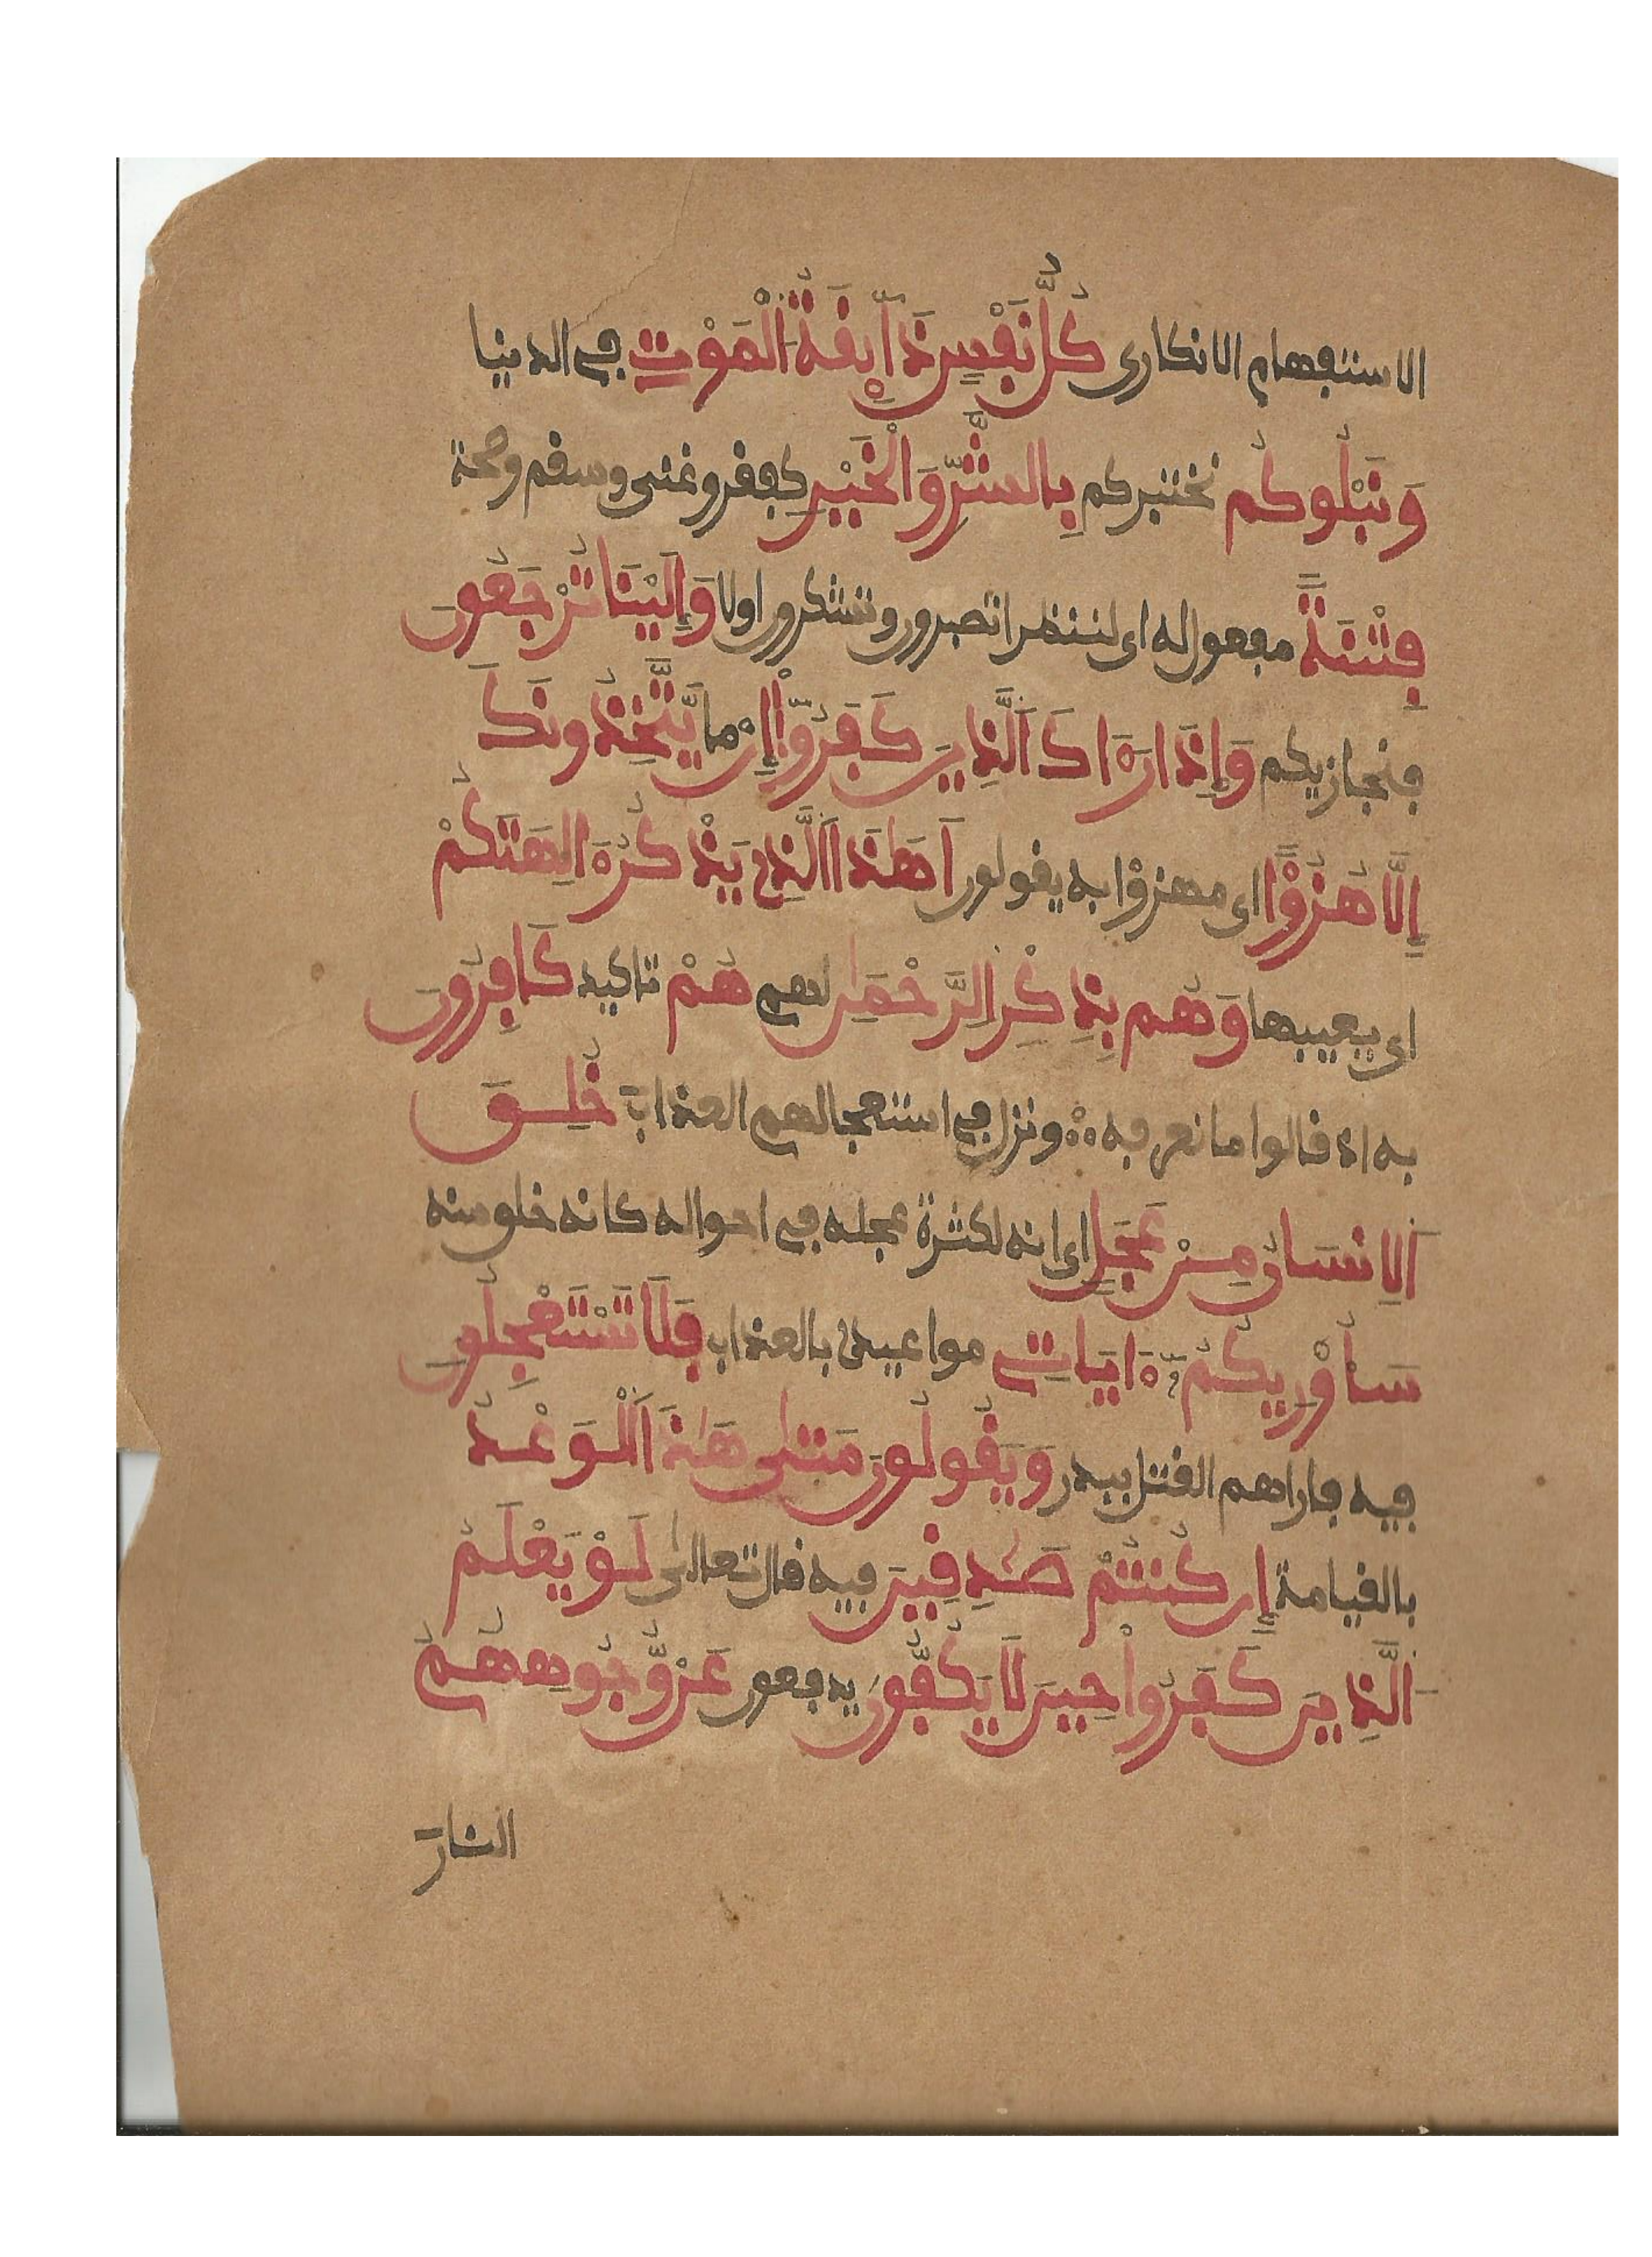 الاستفهام الانكارى كُلُّ نَفْسٍ ذَآئِقَةُ الْمَوْتِ في الدنيا
وَنَبْلُوكُم نختبركم بِالشَّرِّ وَالْخَيْرِ كفقر وغنى وسقم وصحة
فِتْنَةً مفعول له اى لننظر اتصبرون وتشكرون اولا وَإِلَيْنَا تُرْجَعُونَ
فنجازيكم وَإِذَا رَءَاكَ اَلَّذِينَ كَفَرُوٓاْ إِنْ ما يَّتَّخِذُونَكَ
إِلَّا هُزُؤًا اى مهزؤا به يقولون أَهَٰذَا اَلَّذِى يَذْكُرُ ءَالِهَتَكُمْ
اى يعيبها وَهُم بِذِكْرِ الرَّحْمَٰنِ لهم هُمْ تاكيد كَافِرُونَ
به اذ قالوا ما نعرفه ونزل في استعجالهم العذاب خُلِقَ
اَلِانسَانُ مِنْ عَجَلٍ اى انه لكثرة عجله في احواله كانه خلق منه
سَأُوْرِيكُمُۥٓ ءَايَاتِے مواعيدى بالعذاب فَلَا تَسْتَعْجِلُونِ
فيه فاراهم القتل ببدر وَيَقُولُونَ مَتَىٰ هَٰذَا اَلْوَعْدُ
بالقيامة إِن كُنتُمْ صَٰدِقِينَ فيه قال تعالىٰ لَوْ يَعْلَمُ
اَلَّذِينَ كَفَرُواْ حِينَ لَا يَكُفُّونَ يدفعون عَنْ وُّجُوهِهِمُ
النارَ